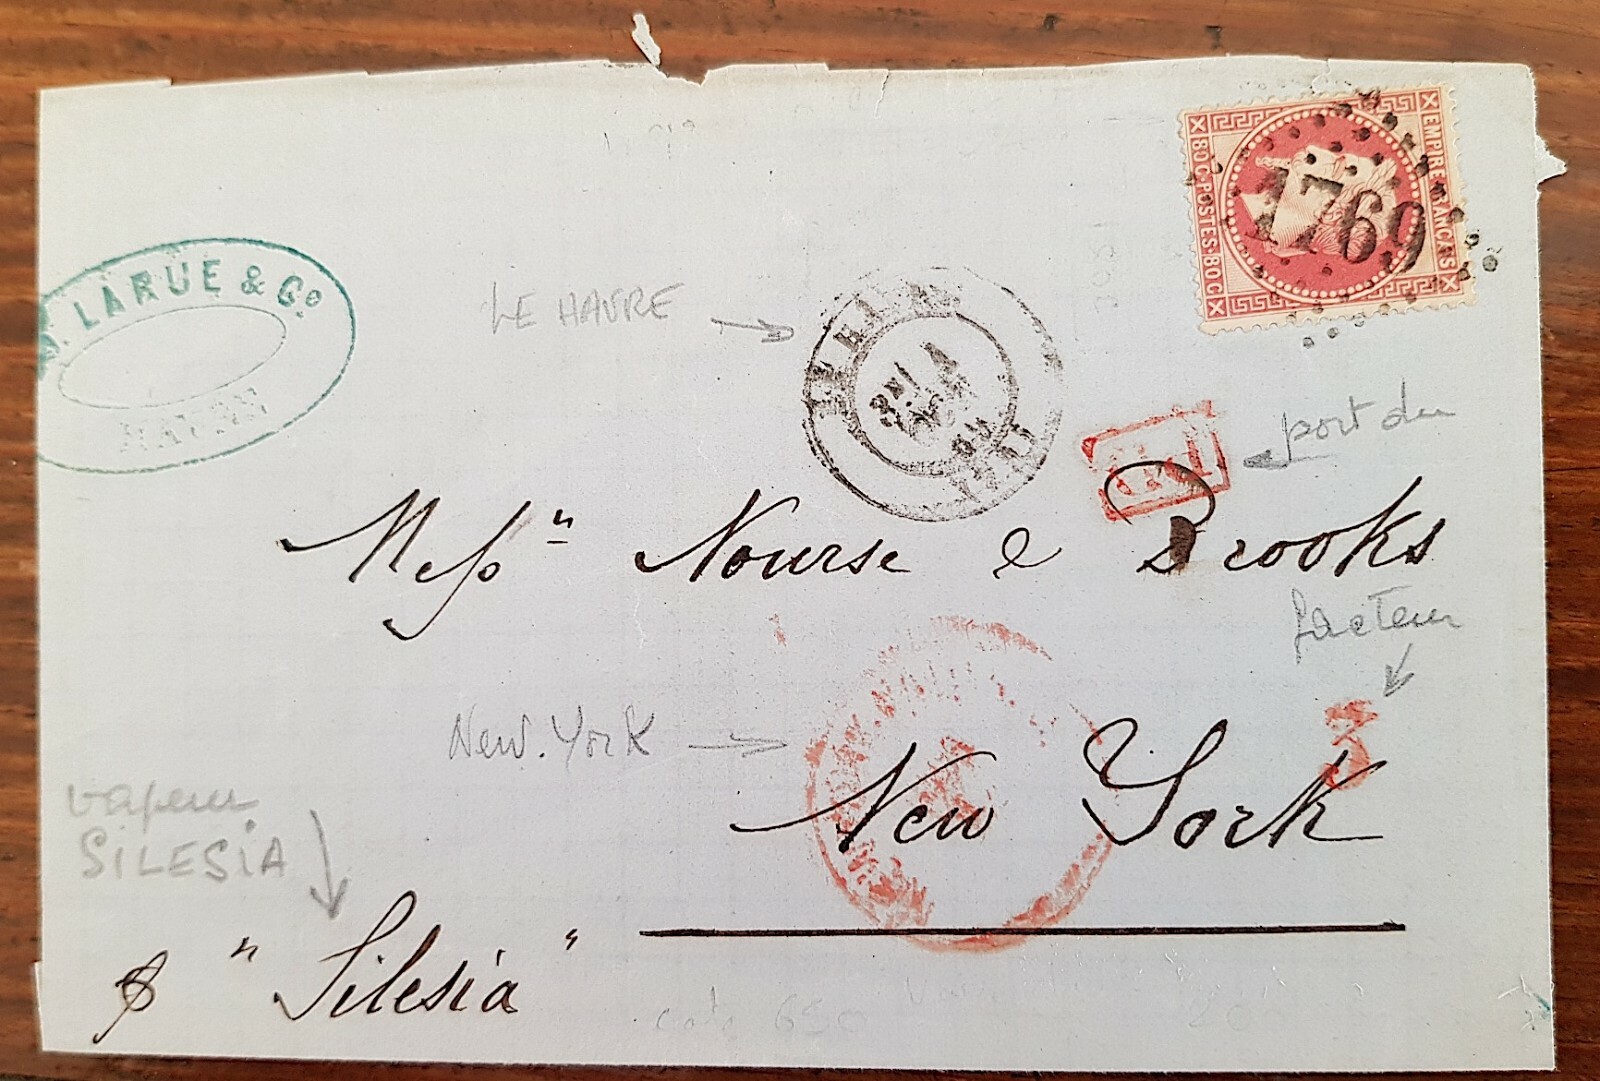 EMPIRE FRANCAIS
80 C · POSTES · 80 C
1769
LARUE & Co
HAVRE
LE HAVRE
port du
Messrs Nourse & Brooks
facteur
3
New-York
New York
vapeur
SILESIA
p "Silesia"